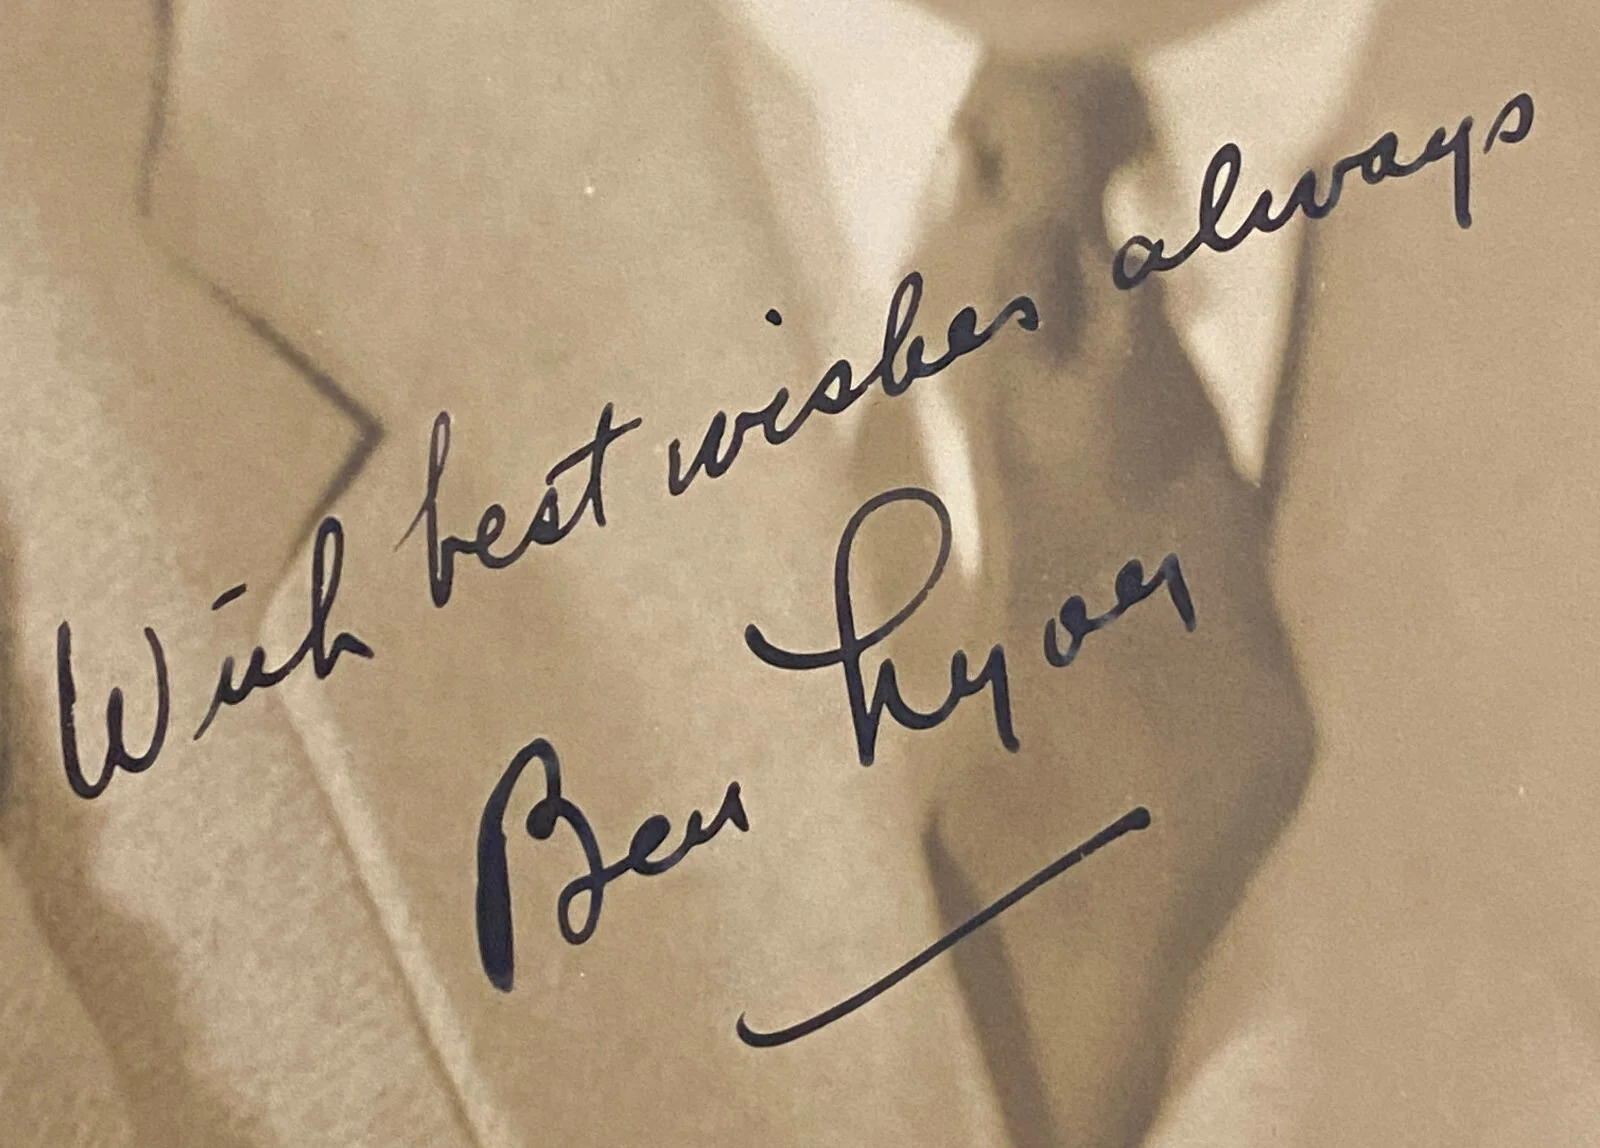 With best wishes always
Ben Lyon